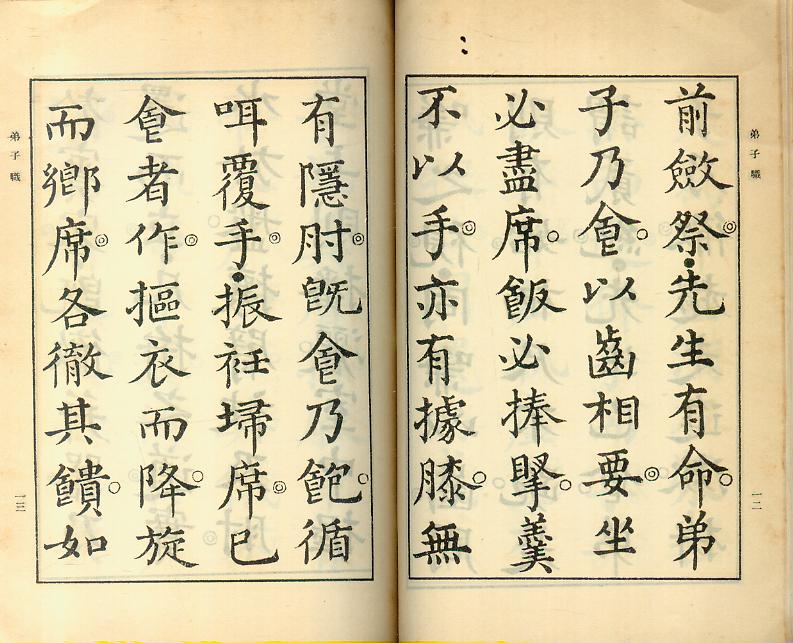 弟子職
一二
前斂祭◎●先生有命○弟
子乃食○以齒相要◎坐
必盡席○飯必捧擥○羹
不以手◎亦有據膝○無
有隱肘◎既食乃飽○循
咡覆手◎●振衽埽席◎已
食者作◎摳衣而降○旋
而鄉席◎各徹其饋○如
弟子職
一三